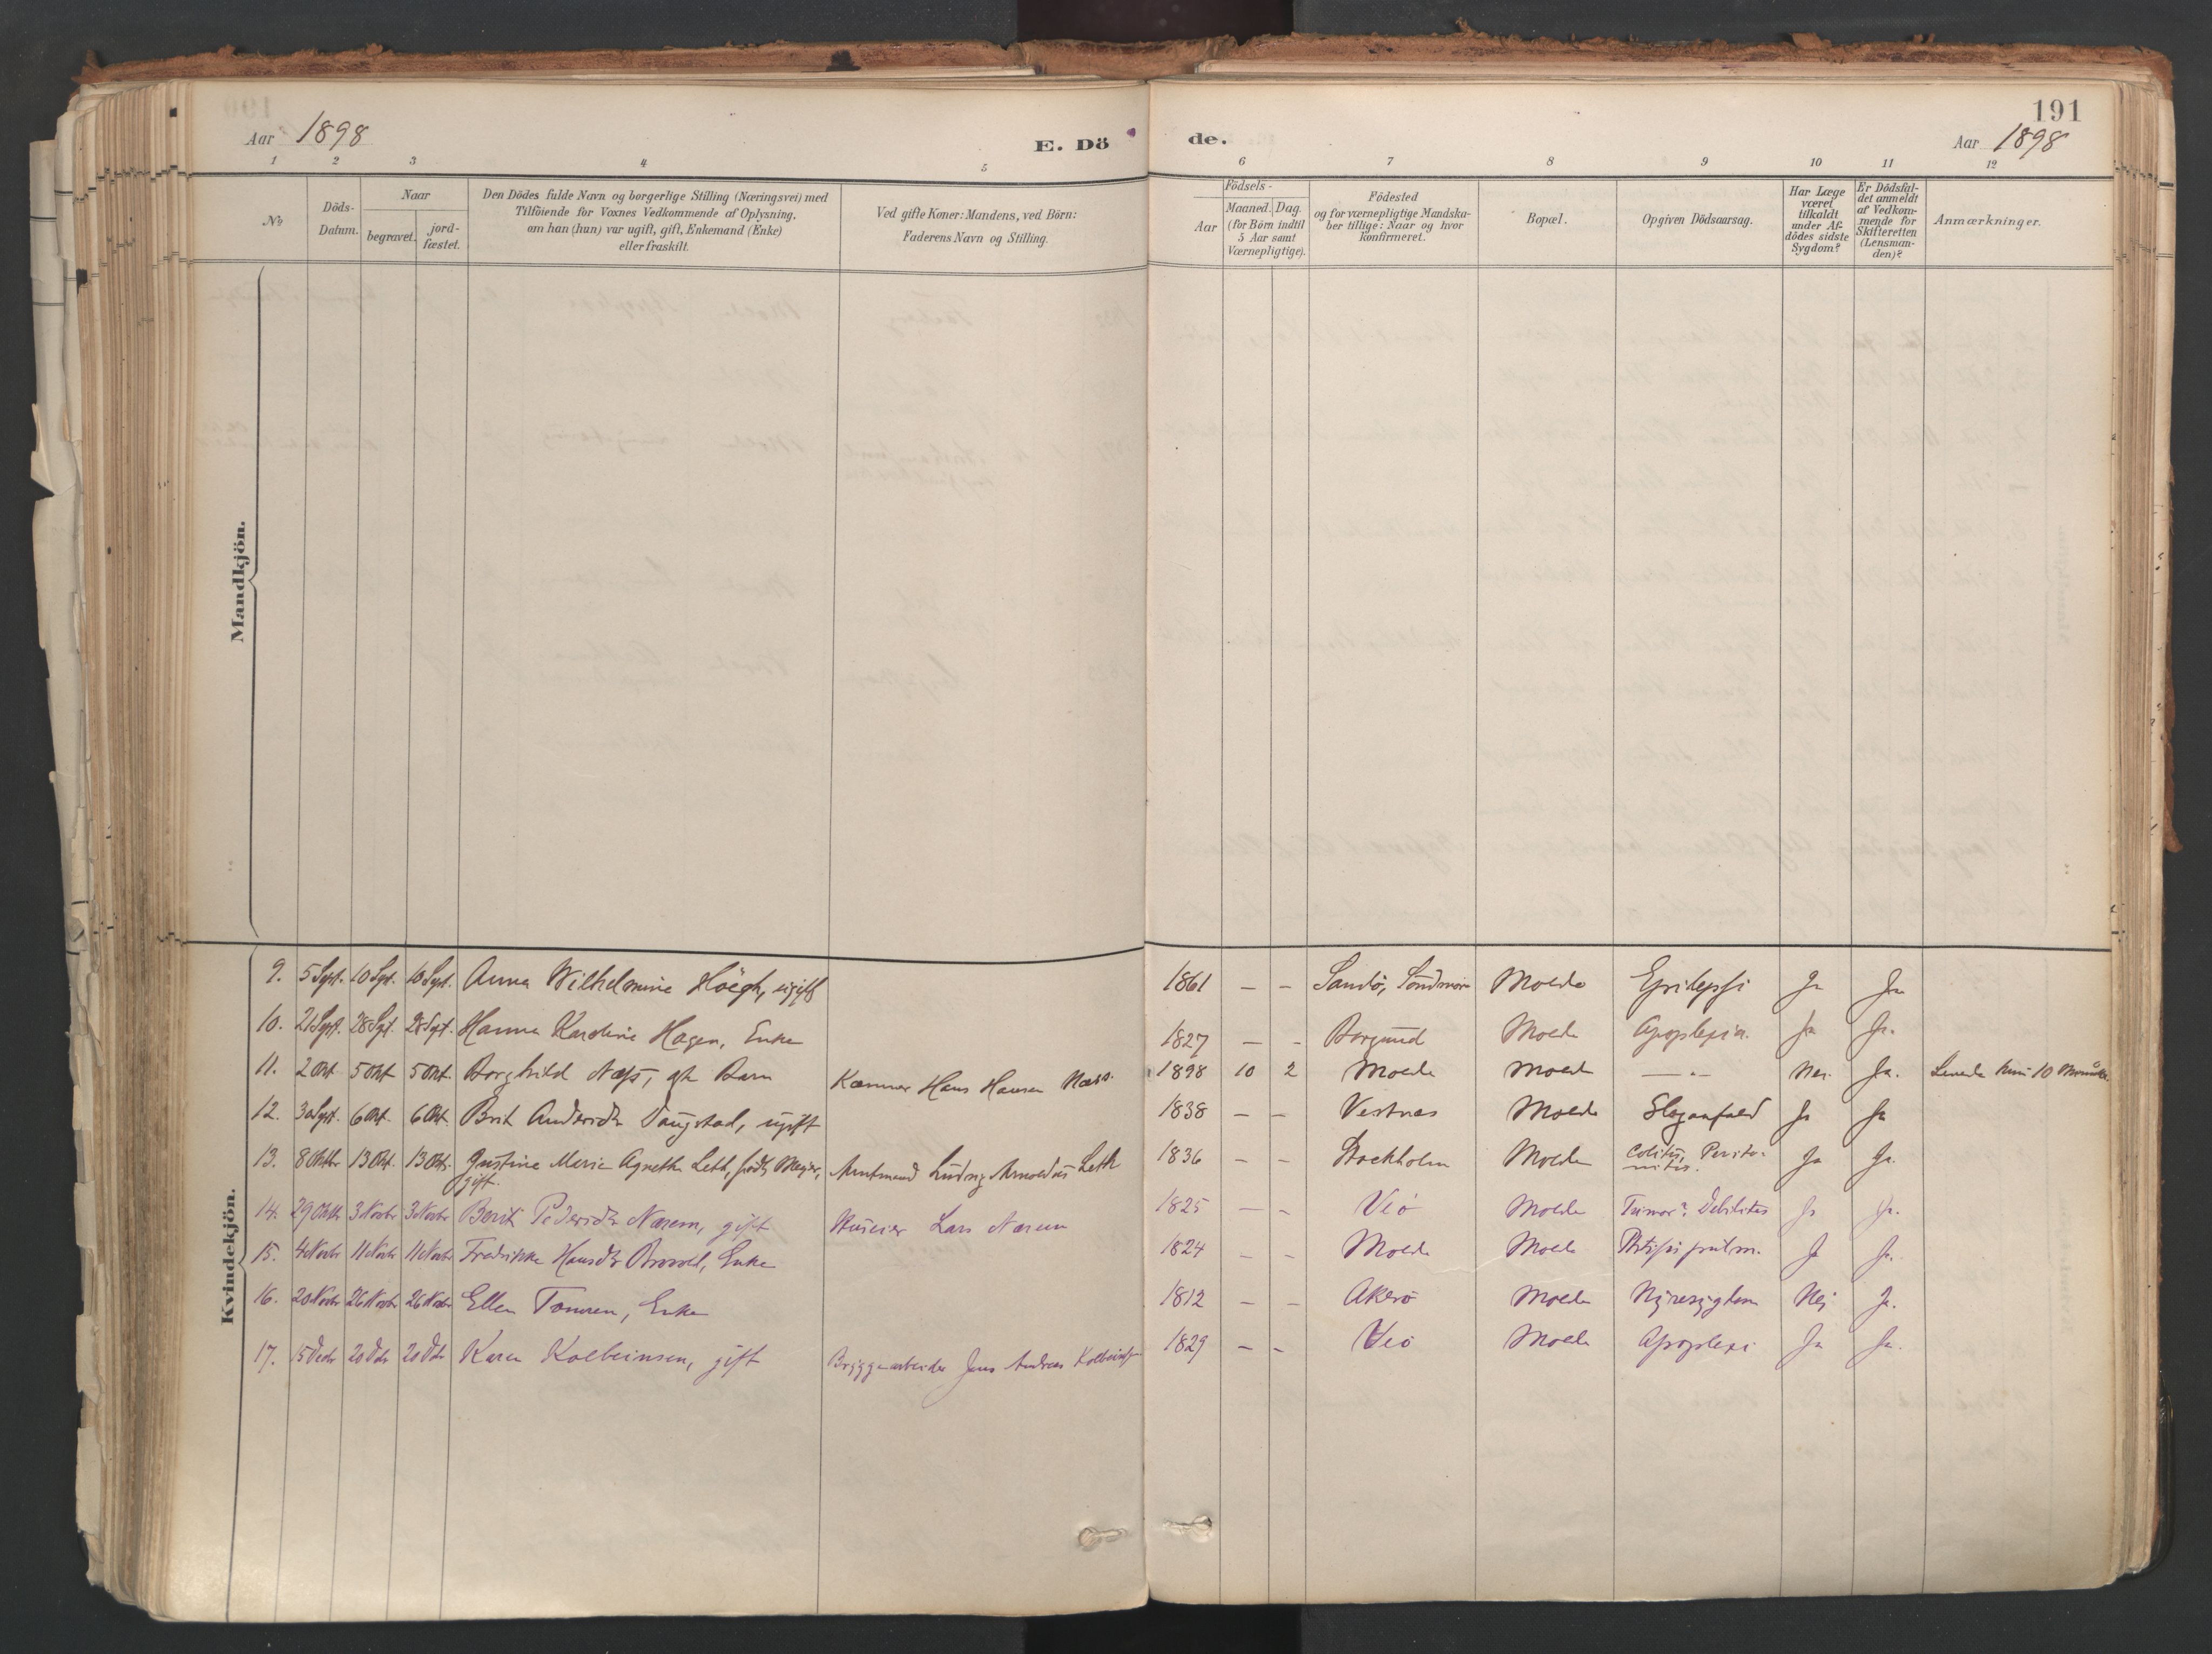 191
Aar 1898
E. Dö
de.
Aar 1898
1 2 3 4 5 6 7 8 9 10 11 12
№
Döds-
Datum.
Naar
begravet.
jord-
fæstet.
Den Dödes fulde Navn og borgerlige Stilling (Næringsvei) med
Tilföiende for Voxnes Vedkommende af Oplysning,
om han (hun) var ugift, gift, Enkemand (Enke)
eller fraskilt.
Ved gifte Koner: Mandens, ved Börn:
Faderens Navn og Stilling.
Födsels-
Aar
Maaned. Dag.
(for Börn indtil
5 Aar samt
Værnepligtige).
Födested
og for værnepligtige Mandska-
ber tillige: Naar og hvor
konfirmeret.
Bopæl.
Opgiven Dödsaarsag.
Har Læge
været
tilkaldt
under Af-
dödes sidste
Sygdom?
Er Dödsfal-
det anmeldt
af Vedkom-
mende for
Skifteretten
(Lensman-
den)?
Anmærkninger.
Mandkjön.
Kvindekjön.
9. 5 Sept. 10 Sept. 10 Sept. Anna Wilhelmine Höegh, ugift 1861 — — Sandö, Söndmör Molde Epilepsi Ja Ja
10. 21 Sept. 28 Sept. 28 Sept. Hanna Karoline Hagen, Enke 1827 — — Borgund Molde Apoplexia Ja Ja.
11. 2 Okt 5 Okt 5 Okt. Borghild Næss, Barn Kæmner Hans Hansen Næss. 1898 10 2 Molde Molde — " — Nei. Ja. Levede kun 10 Minuter
12. 30 Sept. 6 Okt. 6 Okt. Brit Andersdtr Daugstad, ugift 1838 — — Vestnes Molde Slaganfald Ja Ja
13. 8 Oktbr 13 Okt. 13 Okt. Justine Marie Agnethe Leth, født Meyer,
gift. Amtmand Ludvig Arnoldus Leth 1836 — — Stockholm Molde Colitis, Perito-
nitis. Ja Ja.
14. 29 Oktbr 3 Novbr 3 Novbr Berit Pedersdtr Nærem, gift Huseier Lars Nærem 1825 — — Veö Molde Tumor? Debilitas Ja Ja.
15. 4 Novbr 11 Novbr 11 Novbr Fredrikke Hansdtr Enke 1824 — — Molde Molde Phtisis pulm. Ja Ja.
16. 20 Novbr 26 Novbr 26 Novbr Ellen Tomren, Enke 1812 — — Akerö Molde Nyresygdom Nej Ja.
17. 15 Decbr 20 Dcbr 20 Dcbr Karen Kolbeinsen, gift Bryggearbeider Jens Andreas Kolbeinsen 1829 — — Veö Molde Apoplexi Ja Ja.